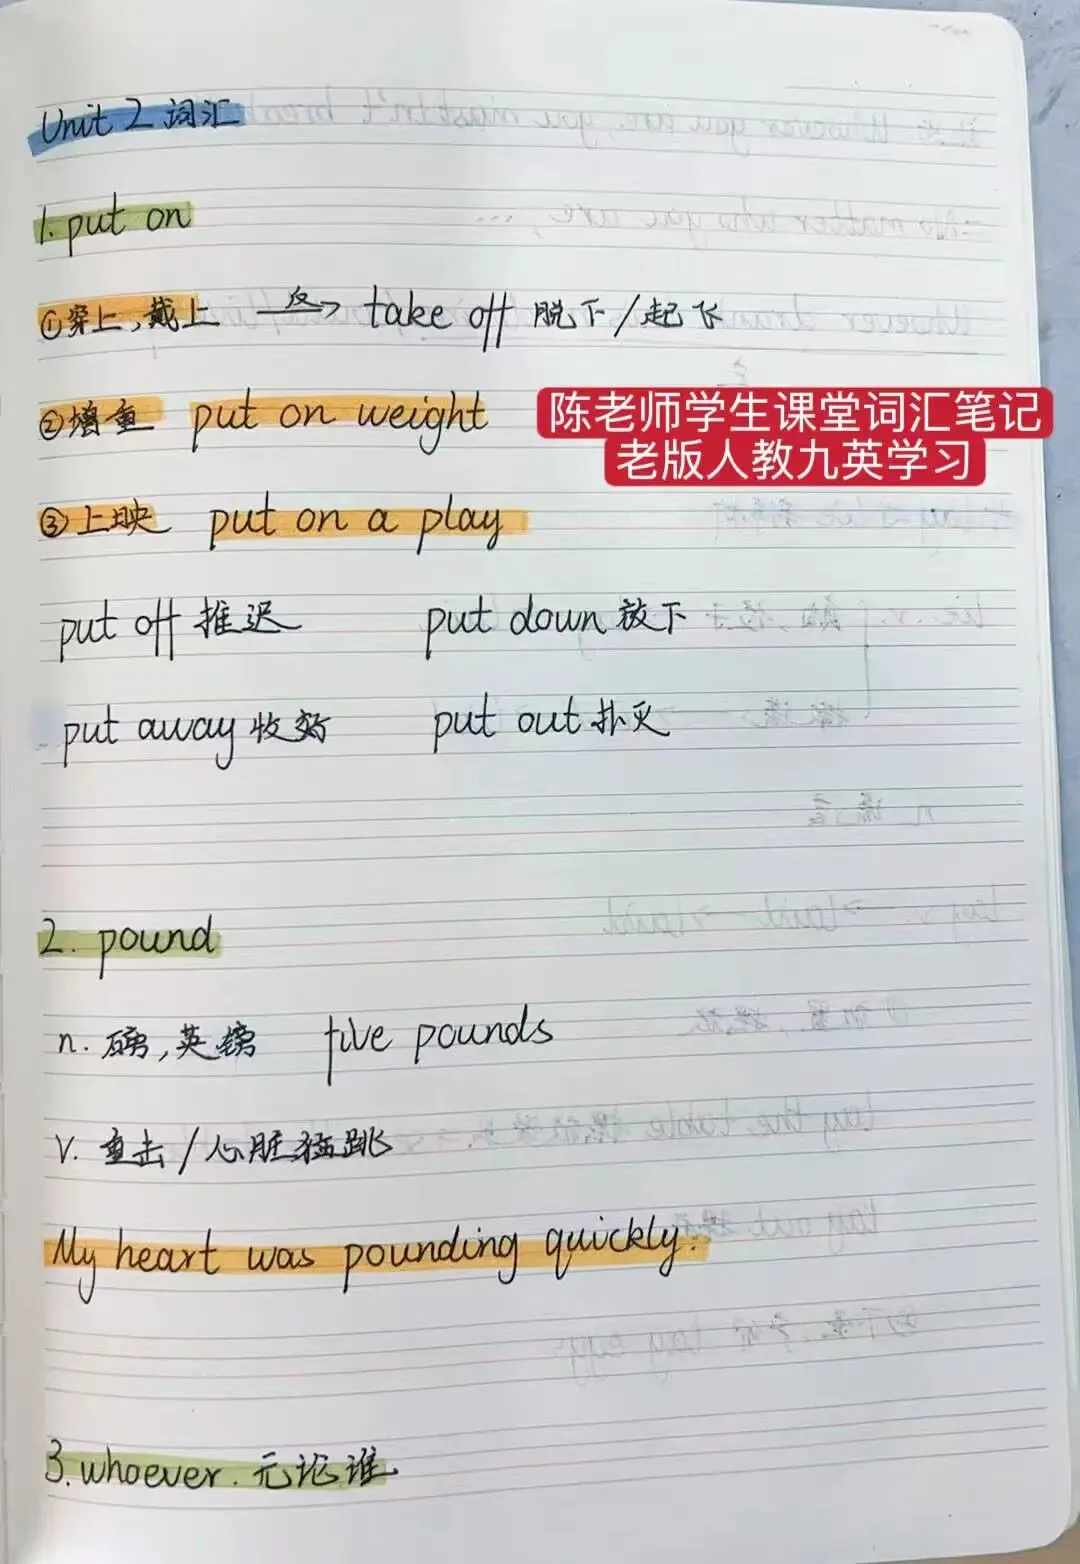 Unit 2 词汇
1. put on
①穿上,戴上 反→ take off 脱下/起飞
②增重 put on weight
陈老师学生课堂词汇笔记
老版人教九英学习
③上映 put on a play
put off 推迟 put down 放下
put away 收好 put out 扑灭
2. pound
n. 磅,英镑 five pounds
v. 重击/心脏猛跳
My heart was pounding quickly.
3. whoever. 无论谁